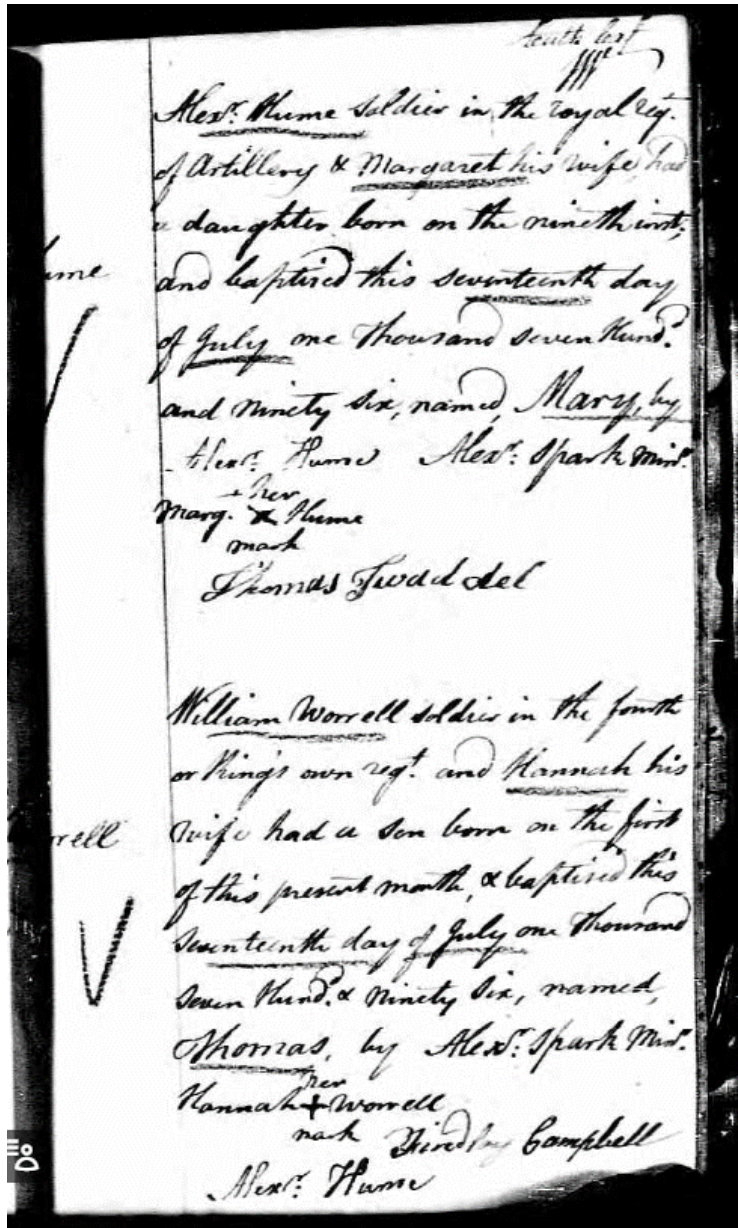 Alexr. Hume soldier in the royal regt.
of Artillery & Margaret his wife, had
a daughter born on the ninth inst;
and baptised this seventeenth day
of July one thousand seven Hund.d
and ninety six, named, Mary, by
ume
Alexr. Hume Alexr. Spark Minr.
her
Marg. x Hume
mark
Thomas Twaddel
William Worrell soldier in the fourth
or King's own regt. and Hannah his
wife had a son born on the first
rrell
of this present month, & baptised this
seventeenth day of July one thousand
seven Hund.d & ninety six, named,
Thomas, by Alexr. Spark Minr.
her
Hannah + Worrell
mark Campbell
Alexr. Hume